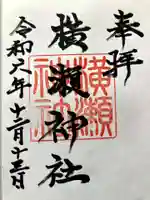 奉拝
横瀬神社
横瀬
神社
令和 年 十二月十五日